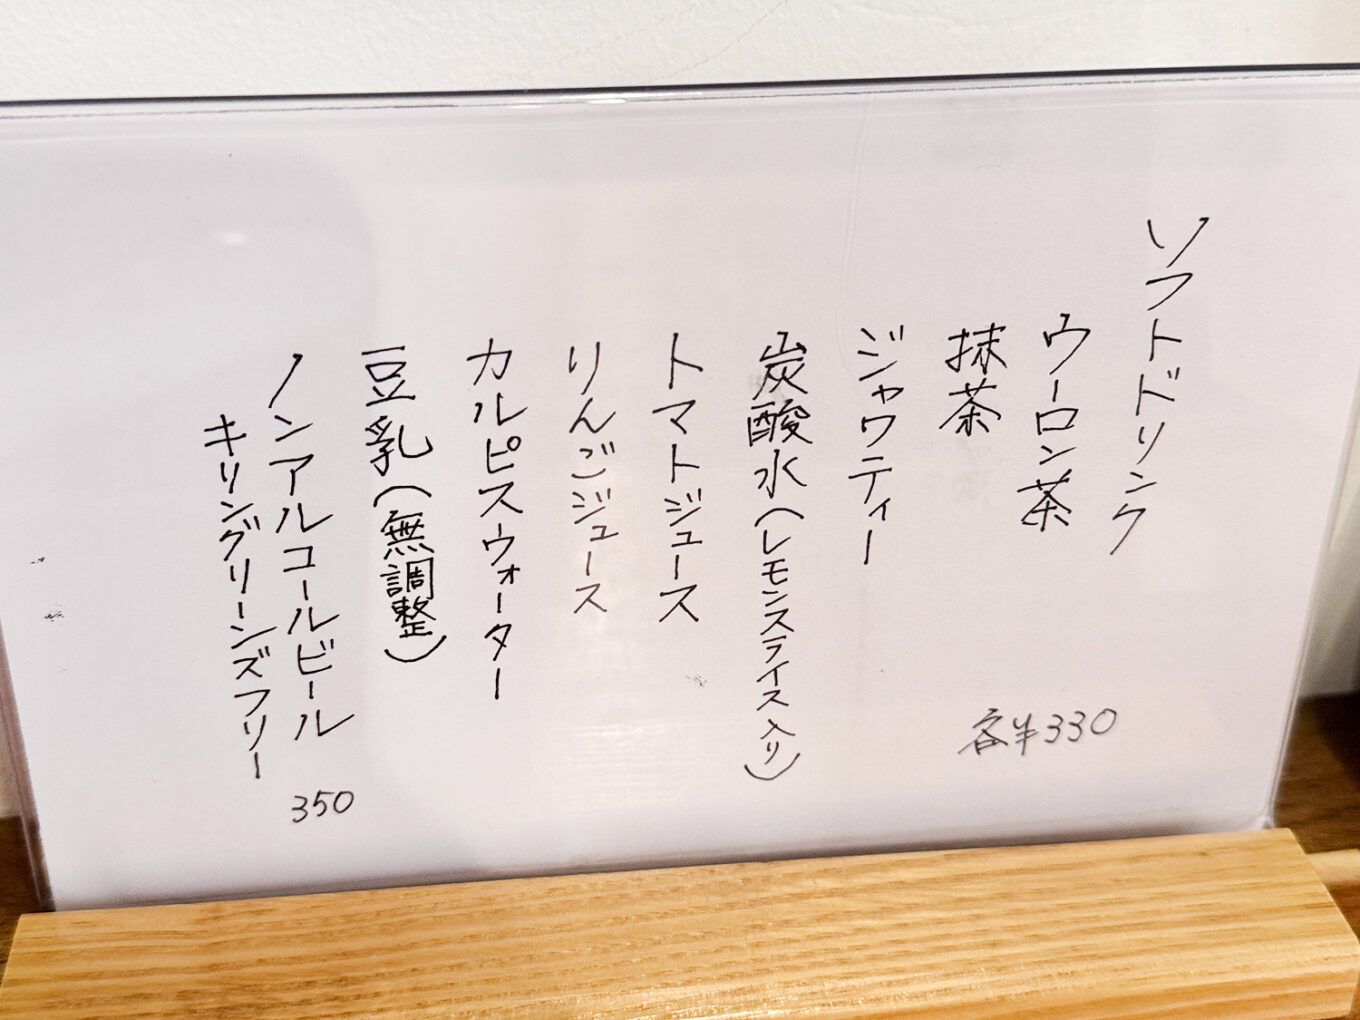 ソフトドリンク
各¥330
ウーロン茶
抹茶
ジャワティー
炭酸水(レモンスライス入り)
トマトジュース
りんごジュース
カルピスウォーター
豆乳(無調整)
ノンアルコールビール
キリングリーンズフリー
350